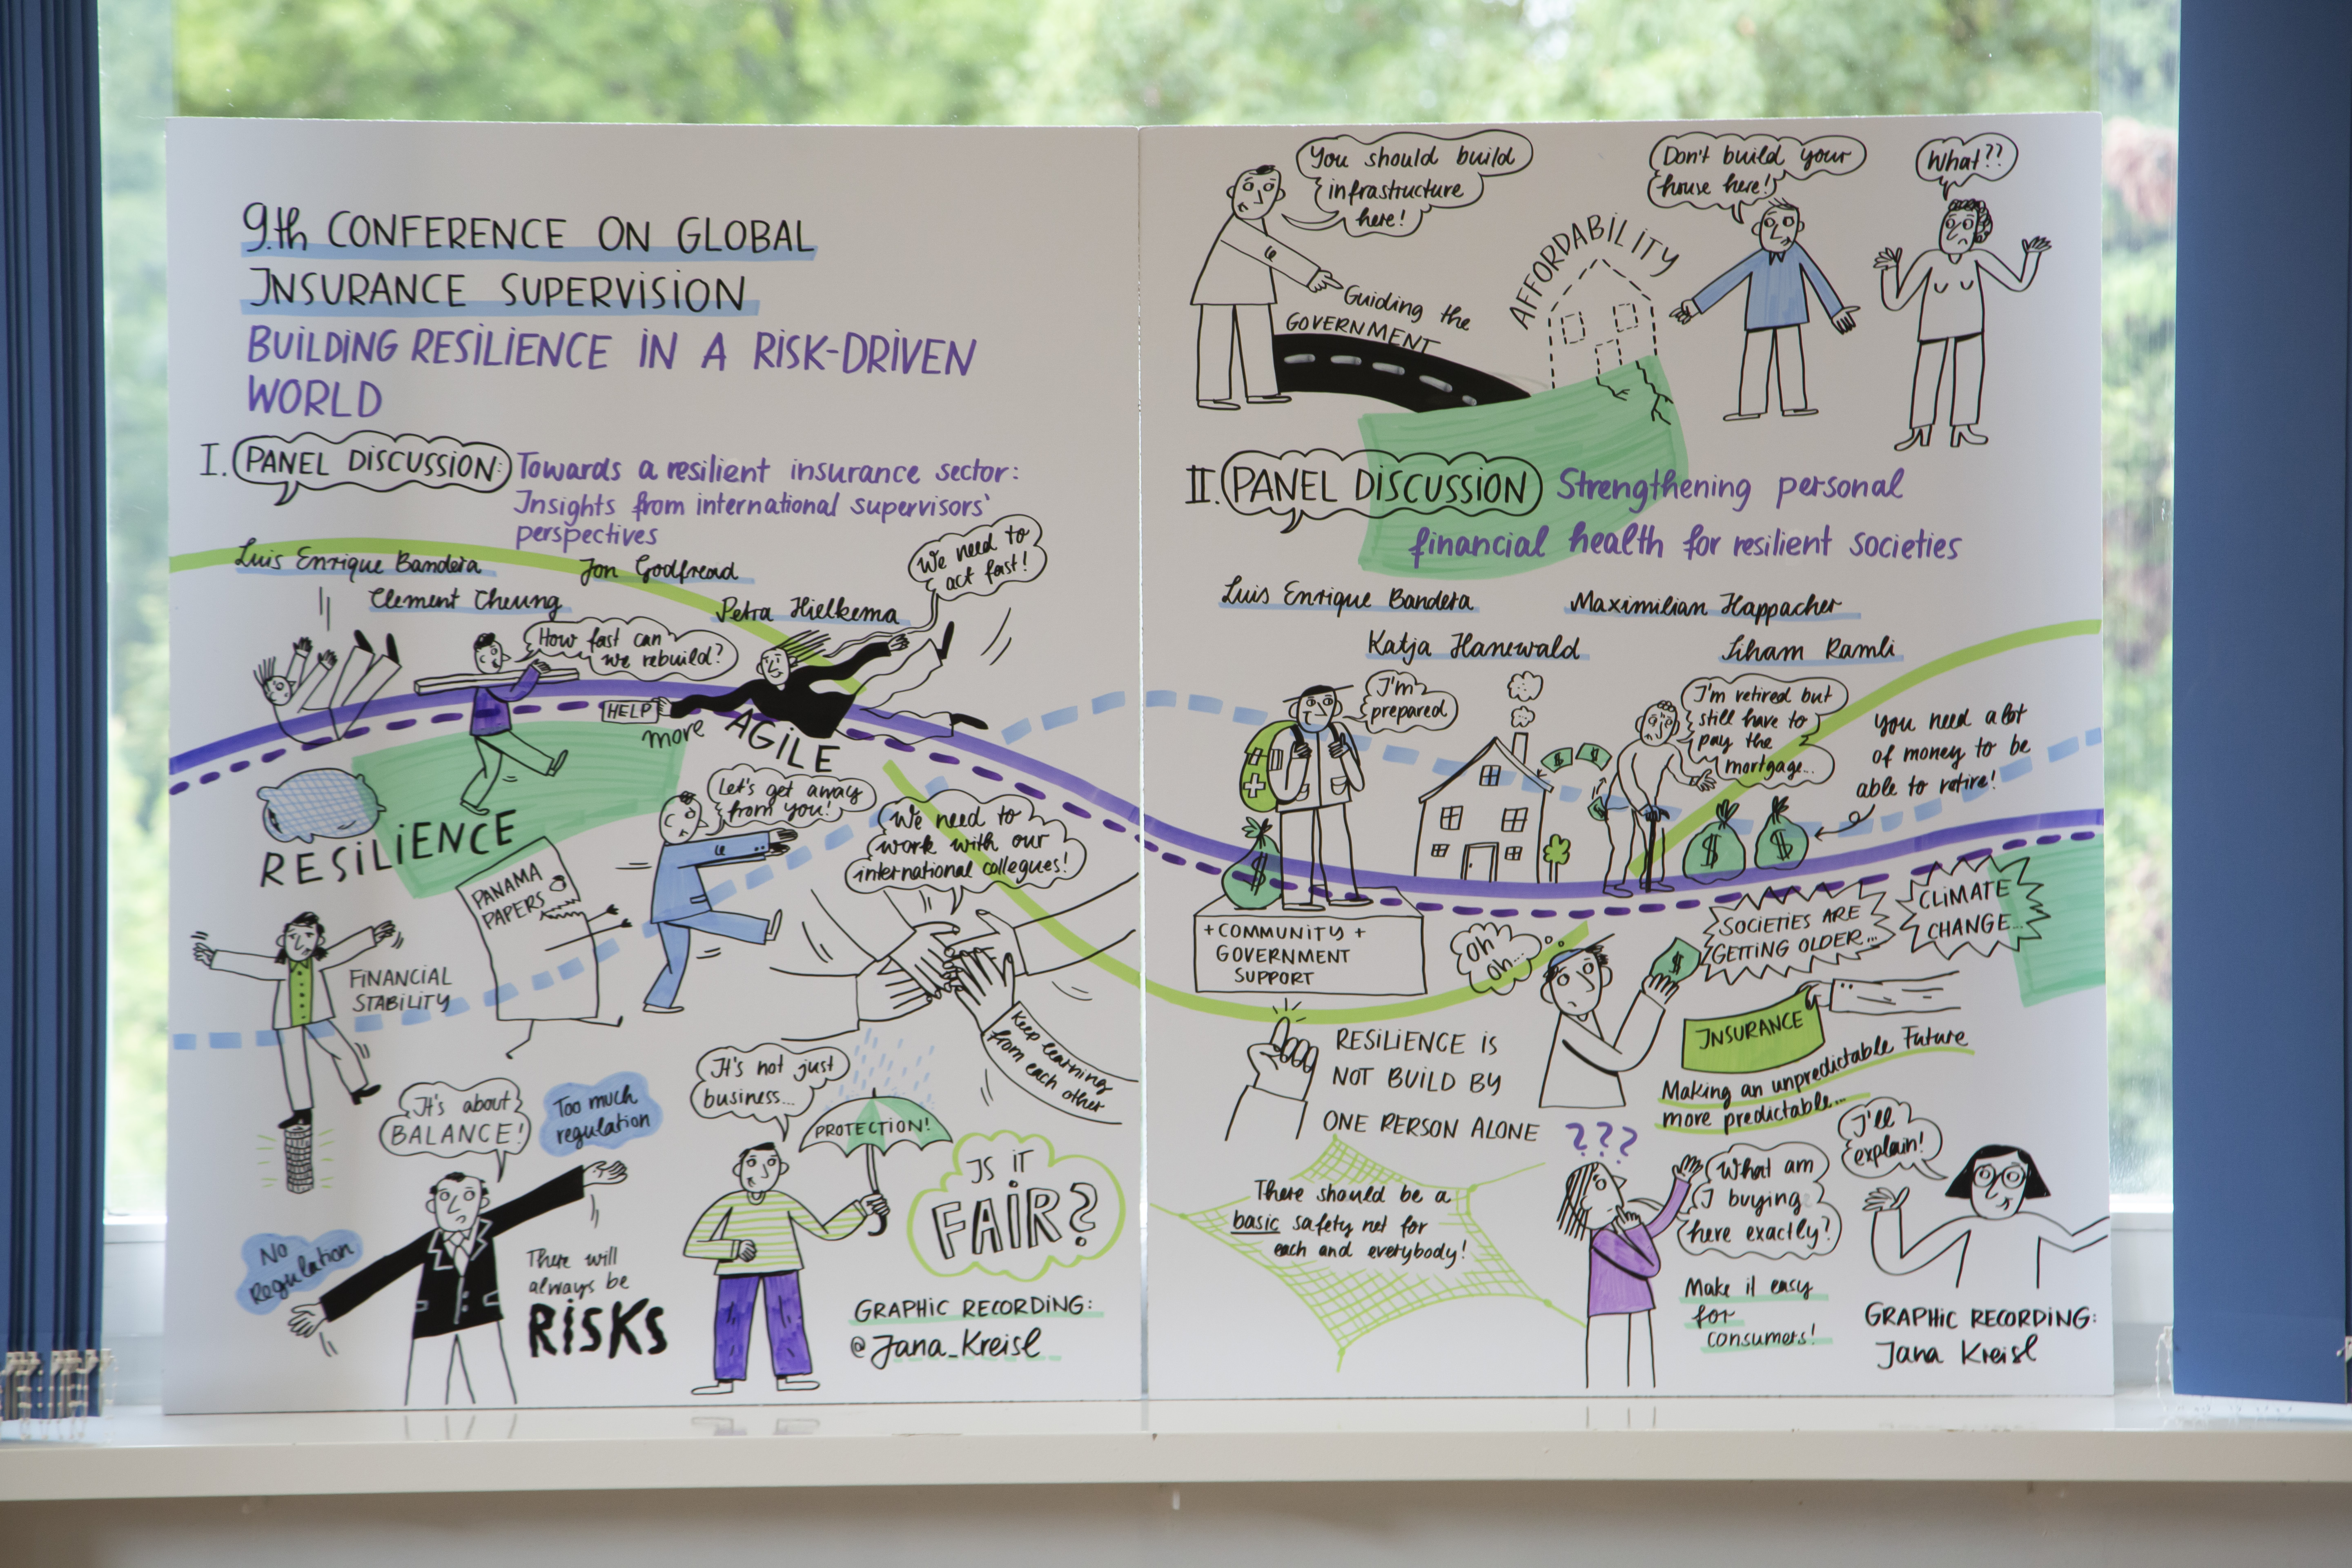 9.th CONFERENCE ON GLOBAL
INSURANCE SUPERVISION
BUILDING RESILIENCE IN A RISK-DRIVEN
WORLD
I. PANEL DISCUSSION: Towards a resilient insurance sector:
Insights from international supervisors'
perspectives
Luis Enrique Bandera
Jon Godfread
Clement Cheung
Petra Hielkema
We need to
act fast!
How fast can
we rebuild?
HELP
more
AGILE
RESILIENCE
Let's get away
from you!
PANAMA
PAPERS
We need to
work with our
international collegues!
Keep learning
from each other
FINANCIAL
STABILITY
It's about
BALANCE!
Too much
regulation
No
Regulation
There will
always be
RISKS
It's not just
business...
PROTECTION!
IS IT
FAIR?
GRAPHIC RECORDING:
@Jana_Kreisl
You should build
infrastructure
here!
Guiding the
GOVERNMENT
AFFORDABILITY
Don't build your
house here!
What??
II. PANEL DISCUSSION Strengthening personal
financial health for resilient societies
Luis Enrique Bandera
Maximilian Happacher
Katja Hanewald
Liham Ramli
I'm
prepared
I'm retired but
still have to
pay the
mortgage...
You need a lot
of money to be
able to retire!
$ $
$
$ $
+ COMMUNITY +
GOVERNMENT
SUPPORT
oh
oh...
$
SOCIETIES ARE
GETTING OLDER...
CLIMATE
CHANGE...
RESILIENCE IS
NOT BUILD BY
ONE PERSON ALONE
INSURANCE
Making an unpredictable Future
more predictable...
There should be a
basic safety net for
each and everybody!
???
What am
I buying
here exactly?
I'll
explain!
Make it easy
for
consumers!
GRAPHIC RECORDING:
Jana Kreisl